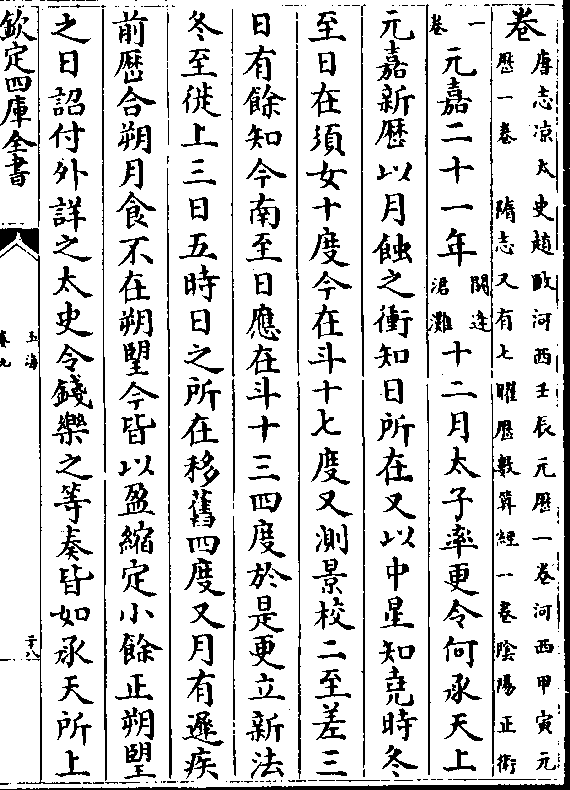 卷
唐志凉太史趙𢾺河西壬辰元歷一卷河西甲寅元
歷一卷 隋志又有七曜歷數算經一卷陰陽正術
一
卷
元嘉二十一年
閼逢
涒灘
十二月太子率更令何承天上
元嘉新歷以月蝕之衝知日所在又以中星知堯時冬
至日在須女十度今在斗十七度又測景校二至差三
日有餘知今南至日應在斗十三四度於是更立新法
冬至徙上三日五時日之所在移舊四度又月有遲疾
前歷合朔月食不在朔朢今皆以盈縮定小餘正朔朢
之日詔付外詳之太史令錢樂之等奏皆如承天所上
欽定四庫全書
玉海
卷九